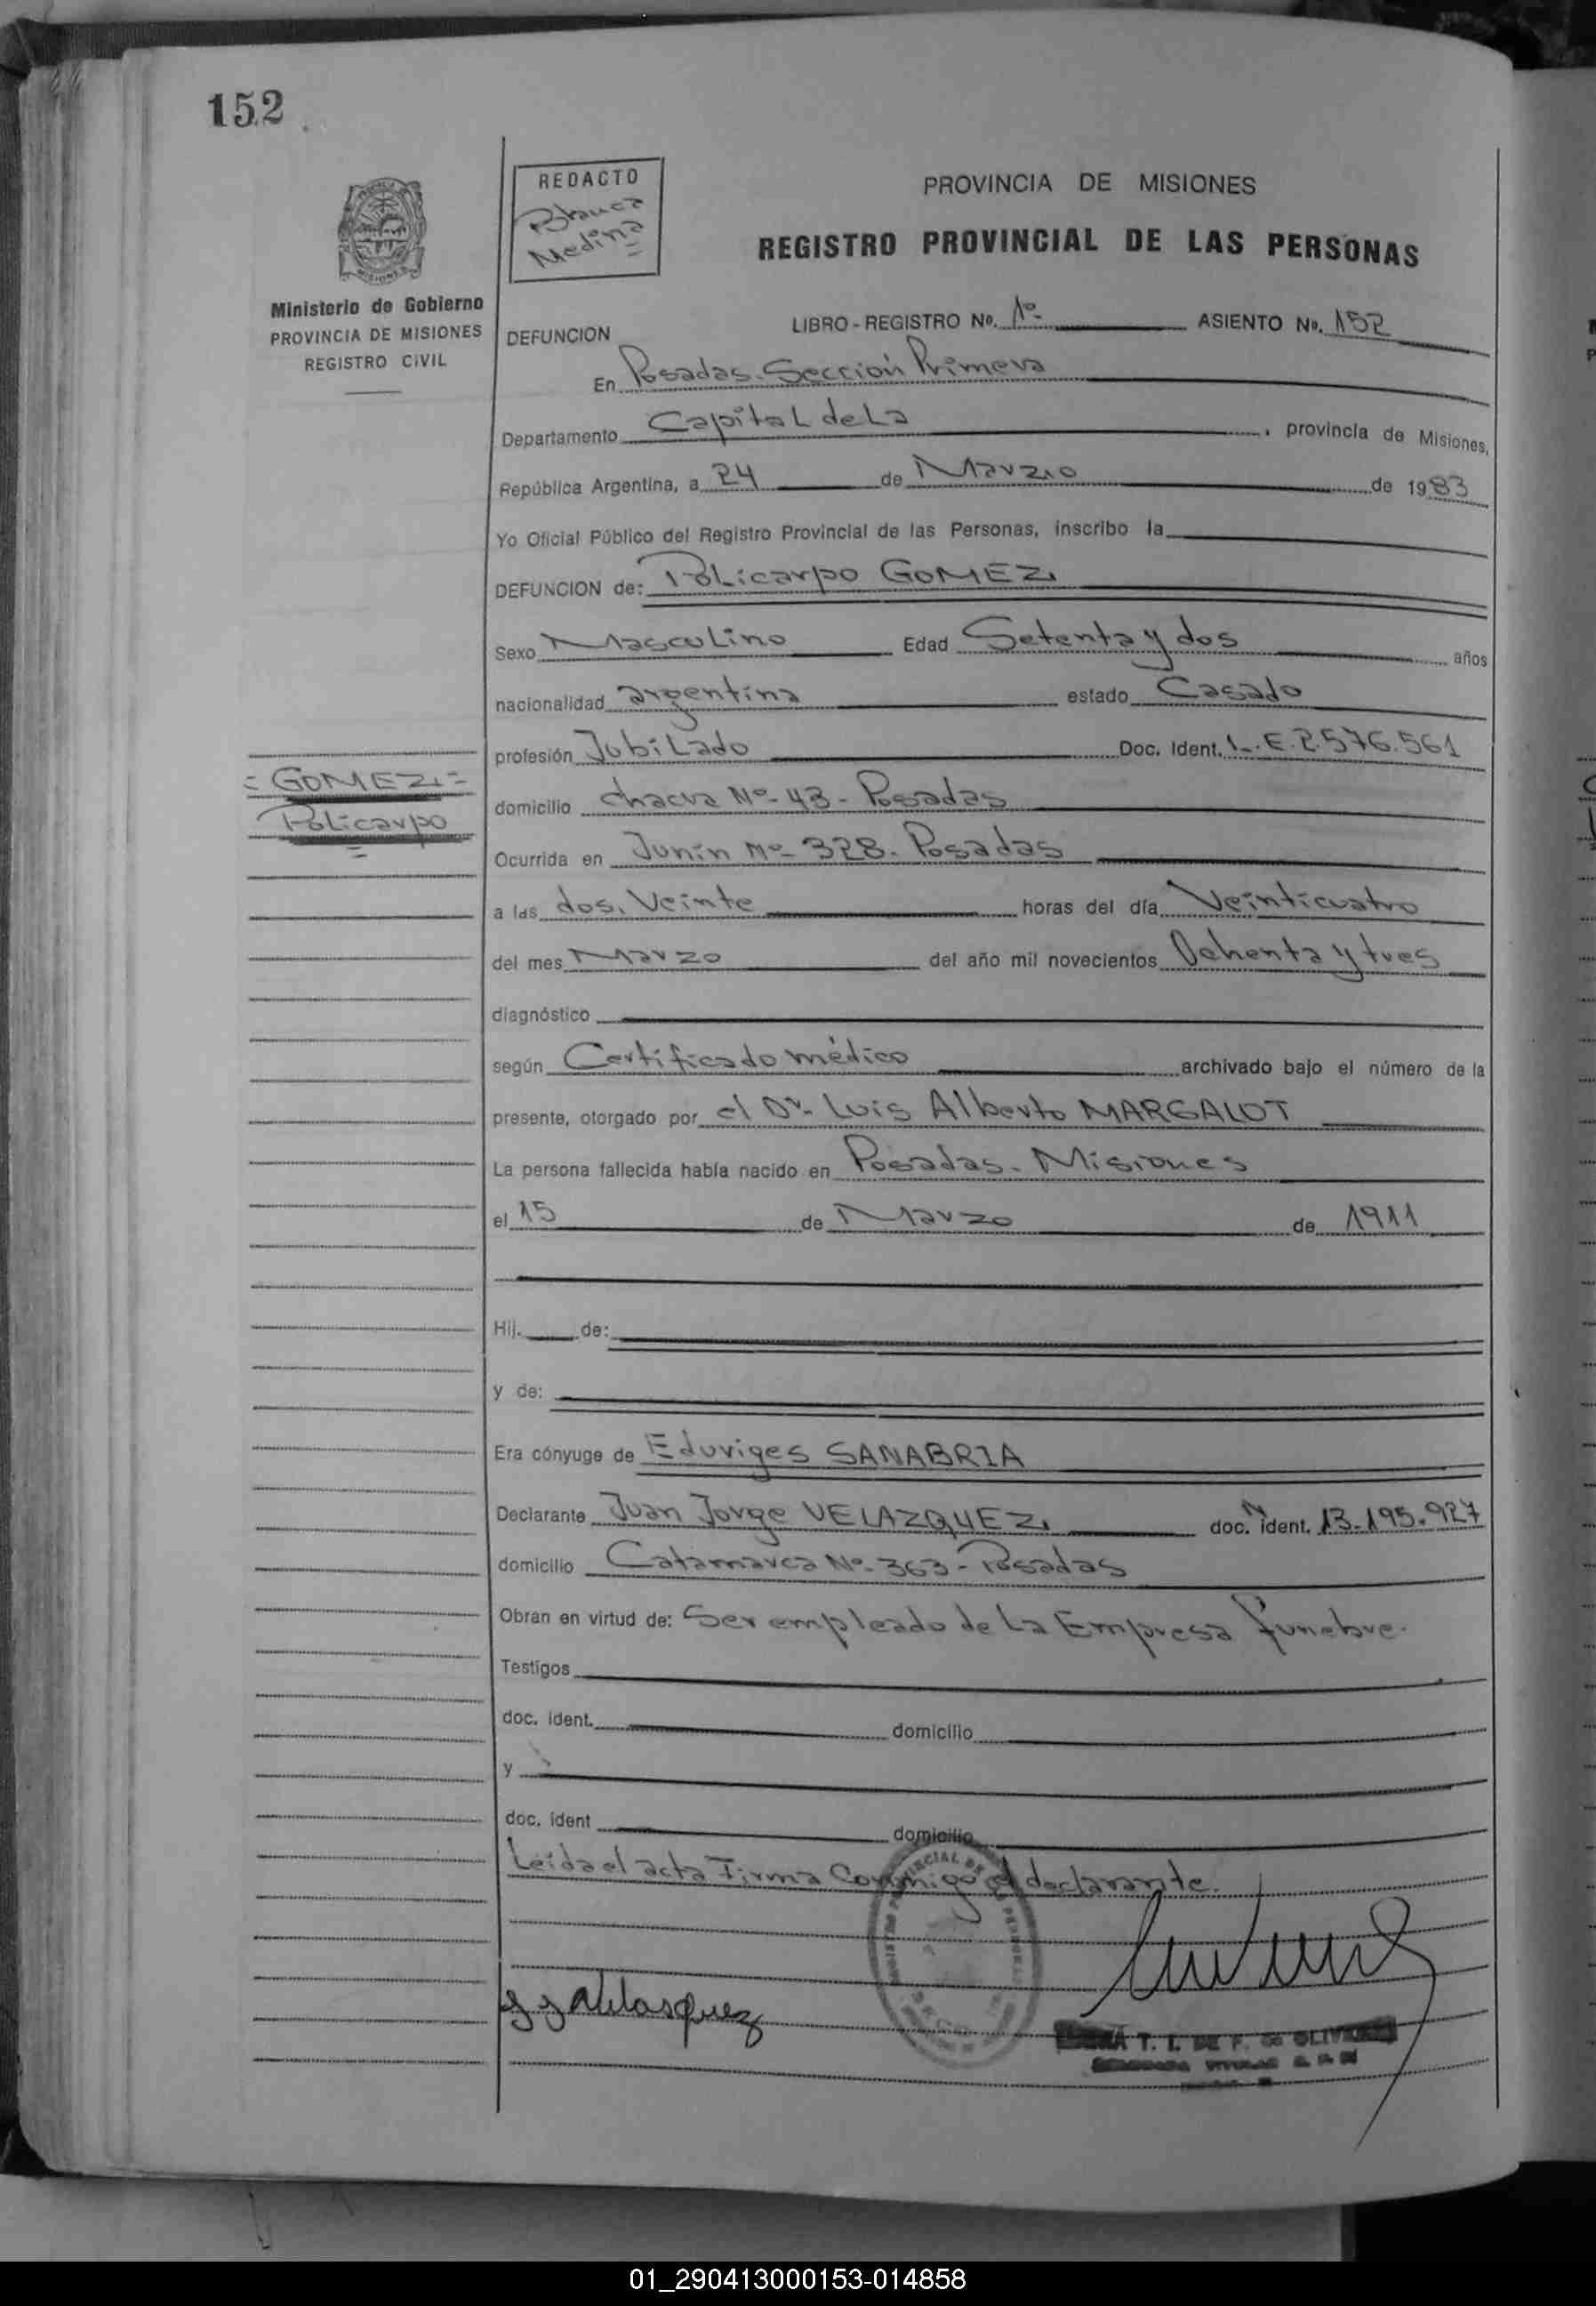 152
REDACTO
Blanca
Medina
PROVINCIA DE MISIONES
REGISTRO PROVINCIAL DE LAS PERSONAS
Ministerio de Gobierno
PROVINCIA DE MISIONES
REGISTRO CIVIL
DEFUNCION LIBRO - REGISTRO No. 1º ASIENTO No. 152
En Posadas. Sección Primera
Departamento Capital de La , provincia de Misiones,
República Argentina, a 24 de Marzo de 1983
Yo Oficial Público del Registro Provincial de las Personas, inscribo la
DEFUNCION de: Policarpo GOMEZ
Sexo Masculino Edad Setenta y dos años
nacionalidad argentina estado Casado
profesión Jubilado Doc. Ident. L.E.2.576.561
= GOMEZ =
Policarpo
domicilio chacra Nº 43 - Posadas
Ocurrida en Junín Nº 328. Posadas
a las dos, Veinte horas del día Veinticuatro
del mes Marzo del año mil novecientos Ochenta y tres
diagnóstico
según Certificado médico archivado bajo el número de la
presente, otorgado por el Dr. Luis Alberto MARGALOT
La persona fallecida había nacido en Posadas. Misiones
el 15 de Marzo de 1911
Hij. de:
y de:
Era cónyuge de Eduviges SANABRIA
Declarante Juan Jorge VELAZQUEZ doc. ident. 13.195.927
domicilio Catamarca Nº 363 - Posadas
Obran en virtud de: Ser empleado de La Empresa fúnebre.
Testigos
doc. ident. domicilio
y
doc. ident domicilio
Leída el acta Firma Conmigo el declarante.
01_290413000153-014858